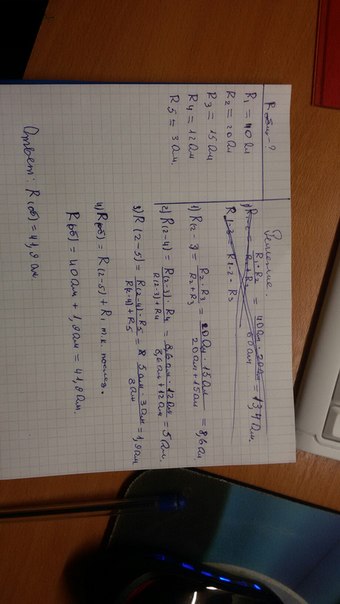 Rобщ - ?
R1 = 40 Ом
R2 = 20 Ом
R3 = 15 Ом
R4 = 12 Ом
R5 = 3 Ом.
Решение.
= R1 · R2 / R1 + R2 = 40 Ом · 20 Ом / 60 Ом = 13,4 Ом.
R1-3 = R1-2 · R3
1) R(2-3) = R2 · R3 / R2 + R3 = 20 Ом · 15 Ом / 20 Ом + 15 Ом = 8,6 Ом
2) R(2-4) = R(2-3) · R4 / R(2-3) + R4 = 8,6 Ом · 12 Ом / 8,6 Ом + 12 Ом = 5 Ом.
3) R(2-5) = R(2-4) · R5 / R(2-4) + R5 = 5 Ом · 3 Ом / 8 Ом = 1,9 Ом
4) R(об) = R(2-5) + R1 т.к. послед.
R(об) = 40 Ом + 1,9 Ом = 41,9 Ом.
Ответ: R(об) = 41,9 Ом.